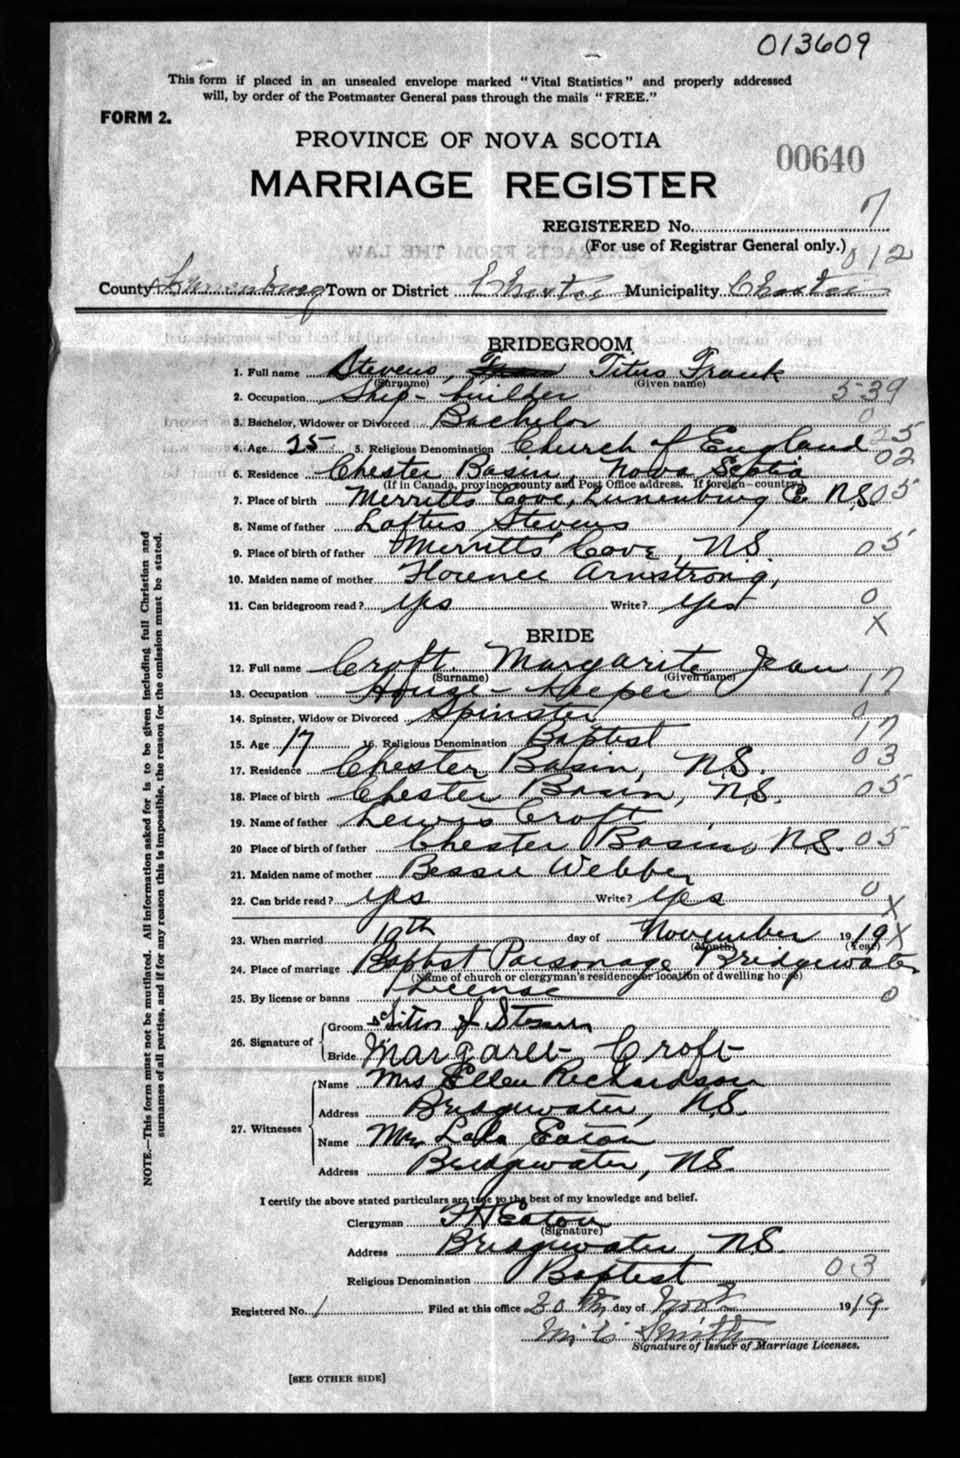 013609
This form if placed in an unsealed envelope marked "Vital Statistics" and properly addressed
will, by order of the Postmaster General pass through the mails "FREE."
FORM 2.
PROVINCE OF NOVA SCOTIA
00640
MARRIAGE REGISTER
REGISTERED No. 7
(For use of Registrar General only.)
012
County Lunenburg Town or District Chester Municipality Chester
BRIDEGROOM
1. Full name Stevens, Titus Frank
(Surname) (Given name)
2. Occupation Ship-builder 539
3. Bachelor, Widower or Divorced Bachelor 0
4. Age 25 5. Religious Denomination Church of England 25
02
6. Residence Chester Basin, Nova Scotia
(If in Canada, province, county and Post Office address. If foreign—country)
7. Place of birth Merritts Cove, Lunenburg Co. N.S. 05
8. Name of father Loftus Stevens
9. Place of birth of father Merritts Cove, N.S. 05
10. Maiden name of mother Florence Armstrong,
11. Can bridegroom read? yes Write? yes 0
X
BRIDE
12. Full name Croft. Margarite Jean
(Surname) (Given name)
13. Occupation House-keeper 17
14. Spinster, Widow or Divorced Spinster 0
15. Age 17 16. Religious Denomination Baptist 17
17. Residence Chester Basin, N.S. 03
18. Place of birth Chester Basin, N.S. 05
19. Name of father Lewis Croft
20 Place of birth of father Chester Basin, N.S. 05
21. Maiden name of mother Bessie Webber
22. Can bride read? yes Write? yes 0
X
23. When married 19th day of November 1919 X
(Month) (Year)
24. Place of marriage Baptist Parsonage, Bridgewater
(Name of church or clergyman's residence or location of dwelling house)
25. By license or banns License 0
26. Signature of Groom Titus F Stevens
Bride Margaret Croft
27. Witnesses Name Mrs Ellen Richardson
Address Bridgewater, N.S.
Name Mrs Lola Eaton
Address Bridgewater, N.S.
I certify the above stated particulars are true to the best of my knowledge and belief.
Clergyman F H Eaton
(Signature)
Address Bridgewater, N.S.
Religious Denomination Baptist 03
Registered No. 1 Filed at this office 20th day of Nov 1919
Smith
Signature of Issuer of Marriage Licenses.
[SEE OTHER SIDE]
NOTE.—This form must not be mutilated. All information asked for is to be given including full Christian and
surnames of all parties, and if for any reason this is impossible, the reason for the omission must be stated.